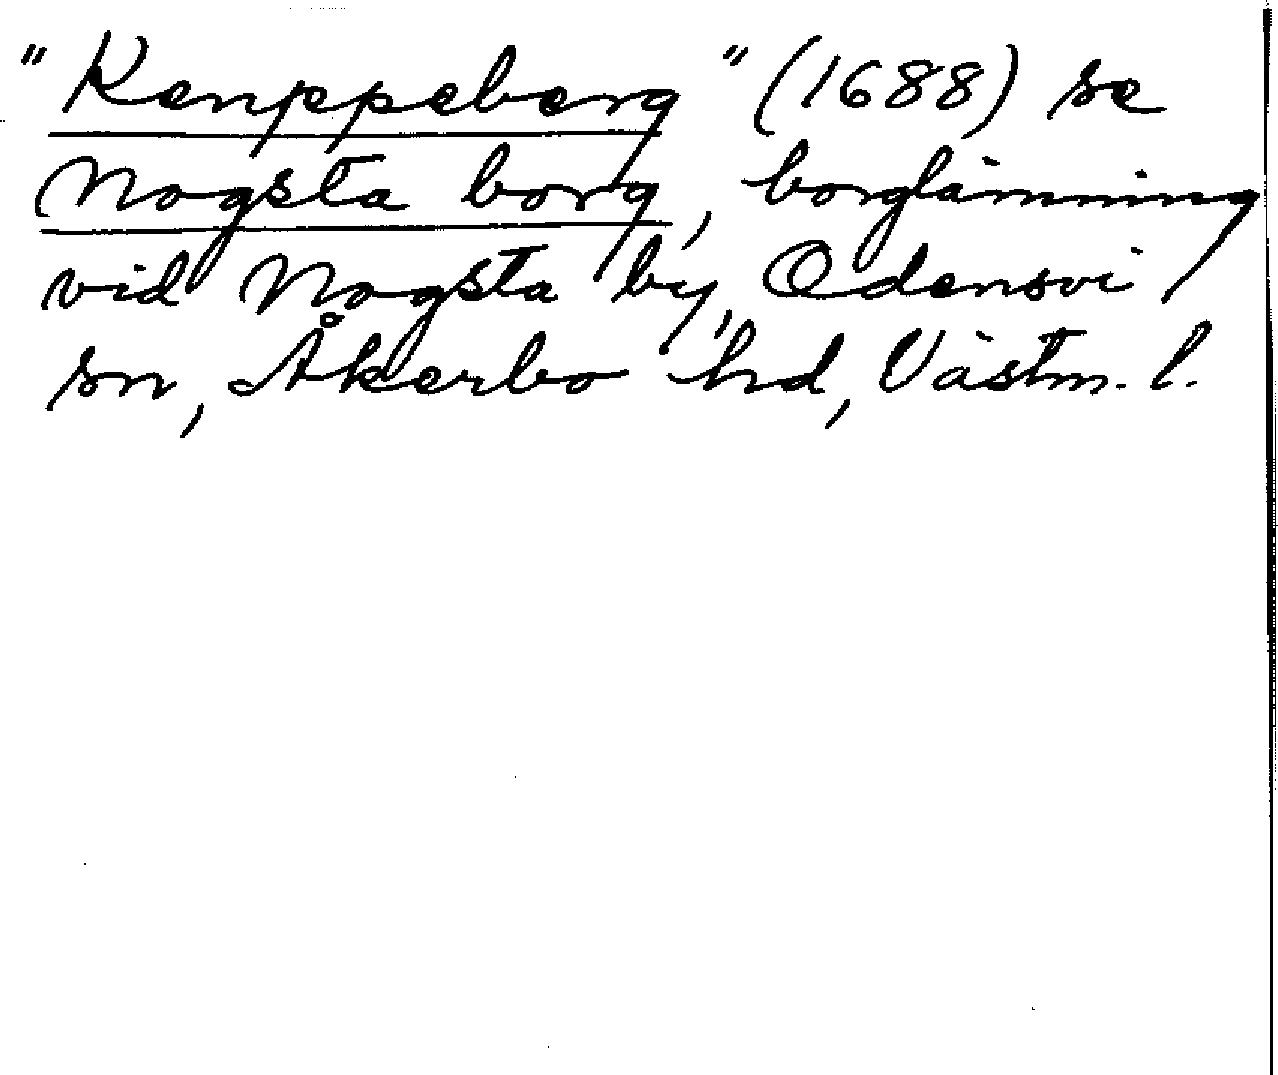 "Kenppeberg" (1688) se
Nogsta borg, borglämning
vid Nogsta by, Odensvi
sn, Åkerbo hd, Västm. l.